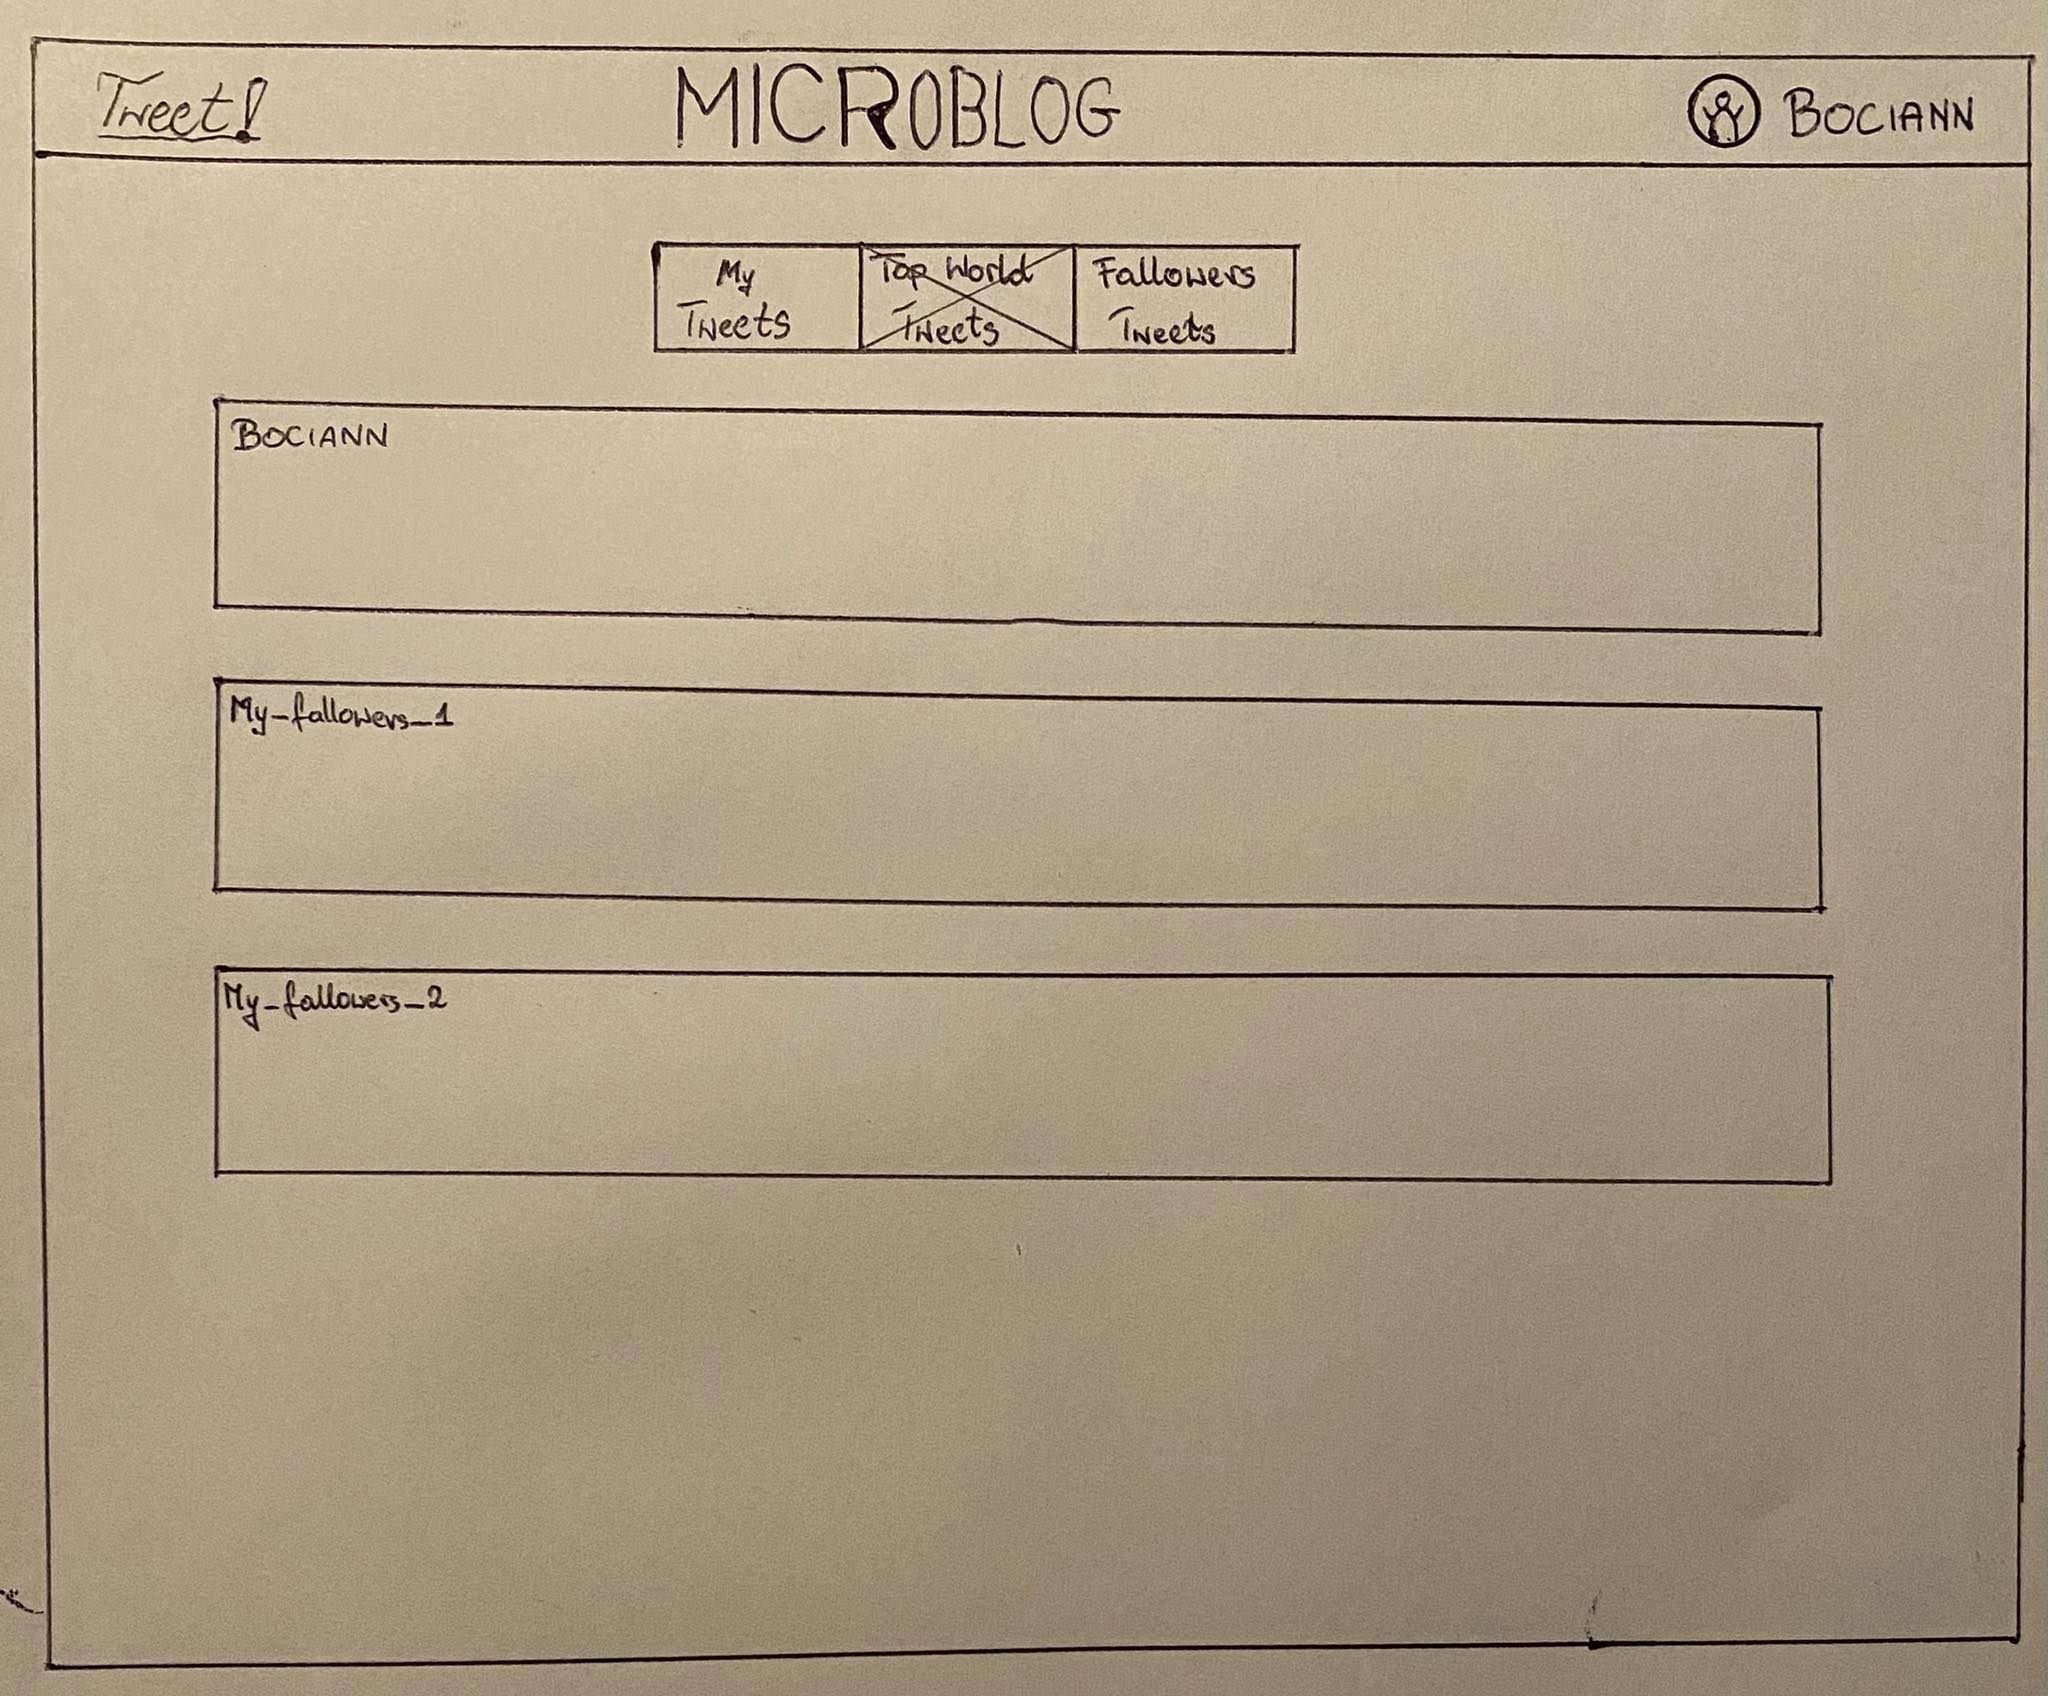 Tweet!
MICROBLOG
BOCIANN
My
Tweets
Top World
Tweets
Fallowers
Tweets
BOCIANN
My_fallowers_1
My_fallowers_2